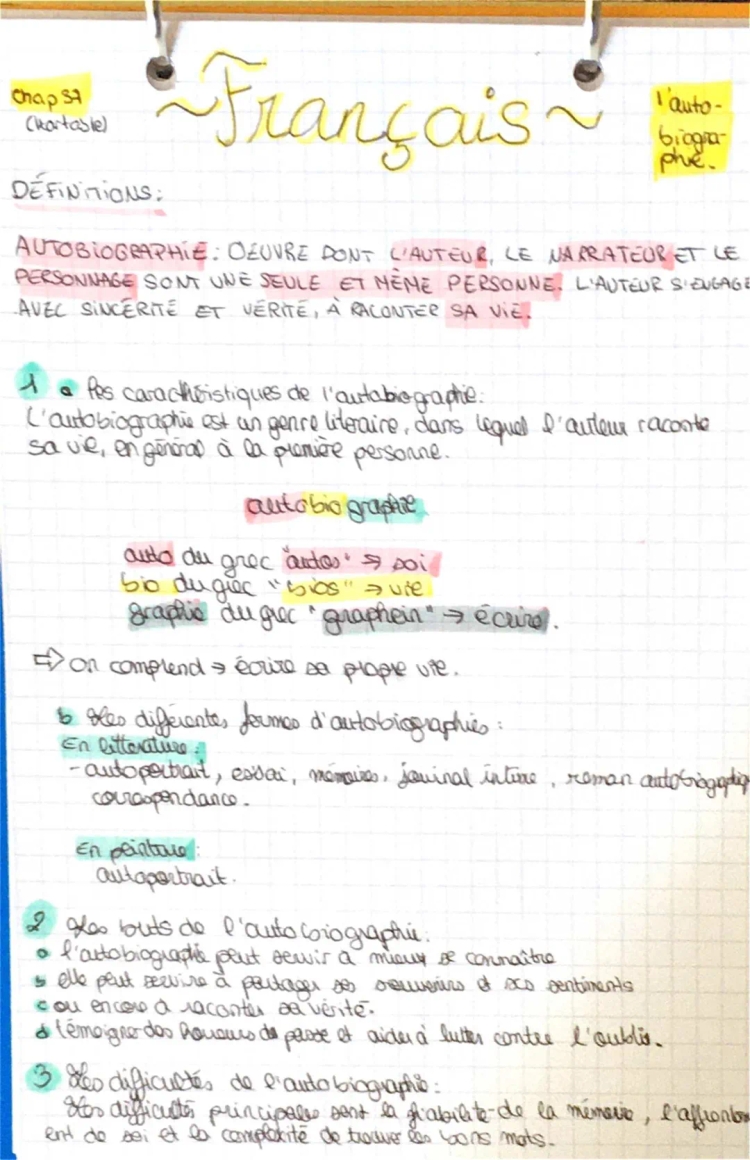 chap 37
(kartable)
~Français~
l'auto-
biogra-
phie.
DÉFINITIONS:
AUTOBIOGRAPHIE: OEUVRE DONT L'AUTEUR, LE NARRATEUR ET LE
PERSONNAGE SONT UNE SEULE ET MÊME PERSONNE. L'AUTEUR S'ENGAGE
AVEC SINCÉRITÉ ET VÉRITÉ, À RACONTER SA VIE.
1 a les caractéristiques de l'autobiographie:
L'autobiographie est un genre literaire, dans lequel l'auteur raconte
sa vie, en général à la première personne.
autobiographie
auto du grec "autos" → soi
bio du grec "bios" → vie
graphie du grec "graphein" → écrire.
⇨ on comprend → écrire sa propre vie.
b les différentes formes d'autobiographies:
En littérature:
- autoportrait, essai, mémoires, journal intime, roman autobiographiq
correspondance.
En peinture:
autoportrait.
2 les buts de l'autobiographie.
a l'autobiographie peut servir à mieux se connaître
b elle peut servire à partager ses souvenirs et ses sentiments
c ou encore à raconter sa vérité.
d témoigner des horreurs du passé et aider à lutter contre l'oublis.
3 les difficultés de l'autobiographie:
les difficultés principales sont la fiabilité de la mémoire, l'affrontem
ent de soi et la complexité de trouver les bons mots.